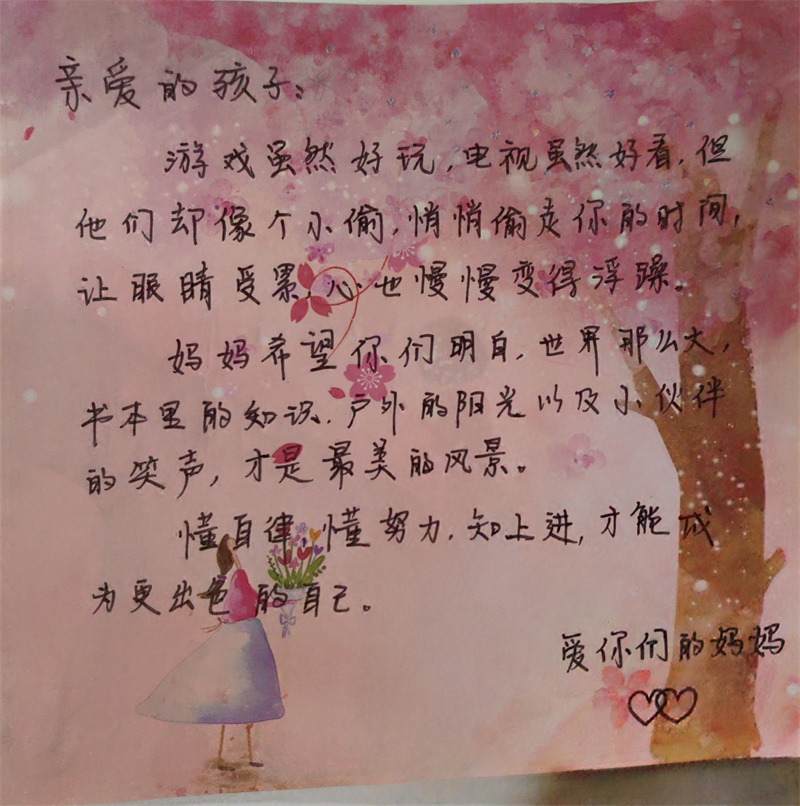 亲爱的孩子:
游戏虽然好玩,电视虽然好看,但
他们却像个小偷,悄悄偷走你的时间,
让眼睛受累,心也慢慢变得浮躁。
妈妈希望你们明白,世界那么大,
书本里的知识、户外的阳光以及小伙伴
的笑声,才是最美的风景。
懂自律,懂努力,知上进,才能成
为更出色的自己。
爱你们的妈妈